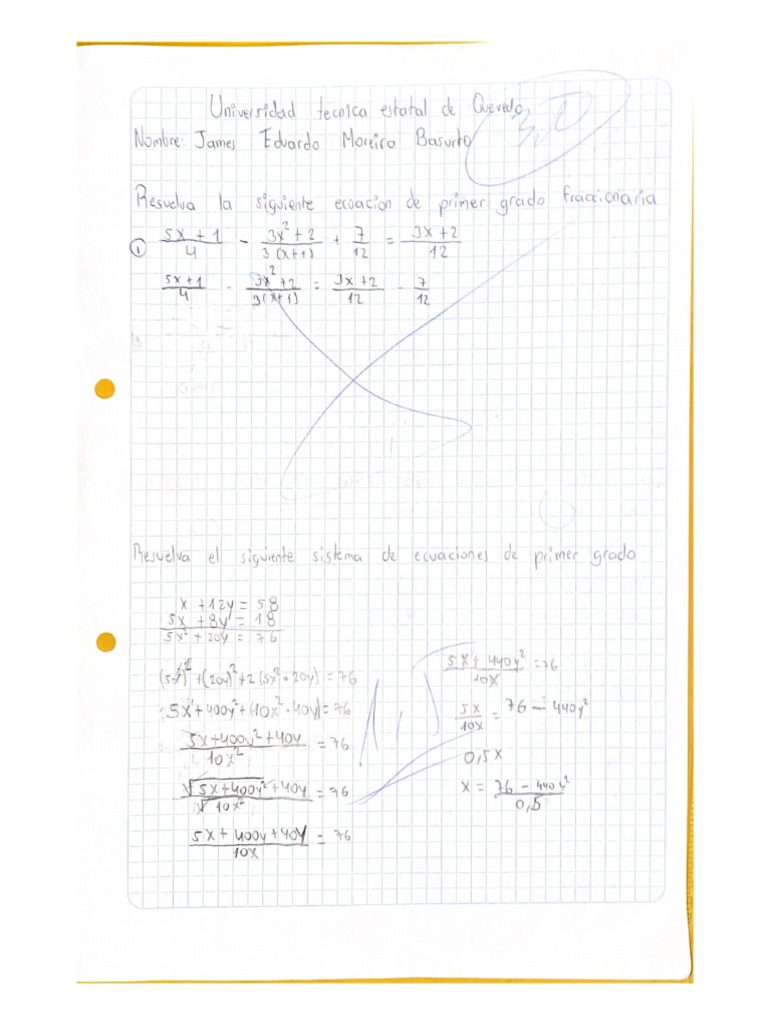 Universidad tecnica estatal de Quevedo
Nombre: James Eduardo Moreira Basurto
Resuelva la siguiente ecuacion de primer grado fraccionaria
① (5x + 1)/4 - (3x² + 2)/(3(x+1)) + 7/12 = (3x + 2)/12
(5x + 1)/4 - (3x² + 2)/(3(x+1)) = (3x + 2)/12 - 7/12
Resuelva el siguiente sistema de ecuaciones de primer grado
x + 12y = 58
5x + 8y = 18
5x² + 20y = 76
(5x)² + (20y)² + 2(5x² · 20y) = 76
5x + 400y² + (10x² · 40y) = 76
(5x + 400y² + 40y)/(10x²) = 76
(√5x + 400y² + 40y)/(√10x²) = 76
(5x + 400y + 40y)/(10x) = 76
(5x + 440y²)/(10x) = 76
5x/10x = 76 - 440y²
0,5x
x = (76 - 440y²)/(0,5)